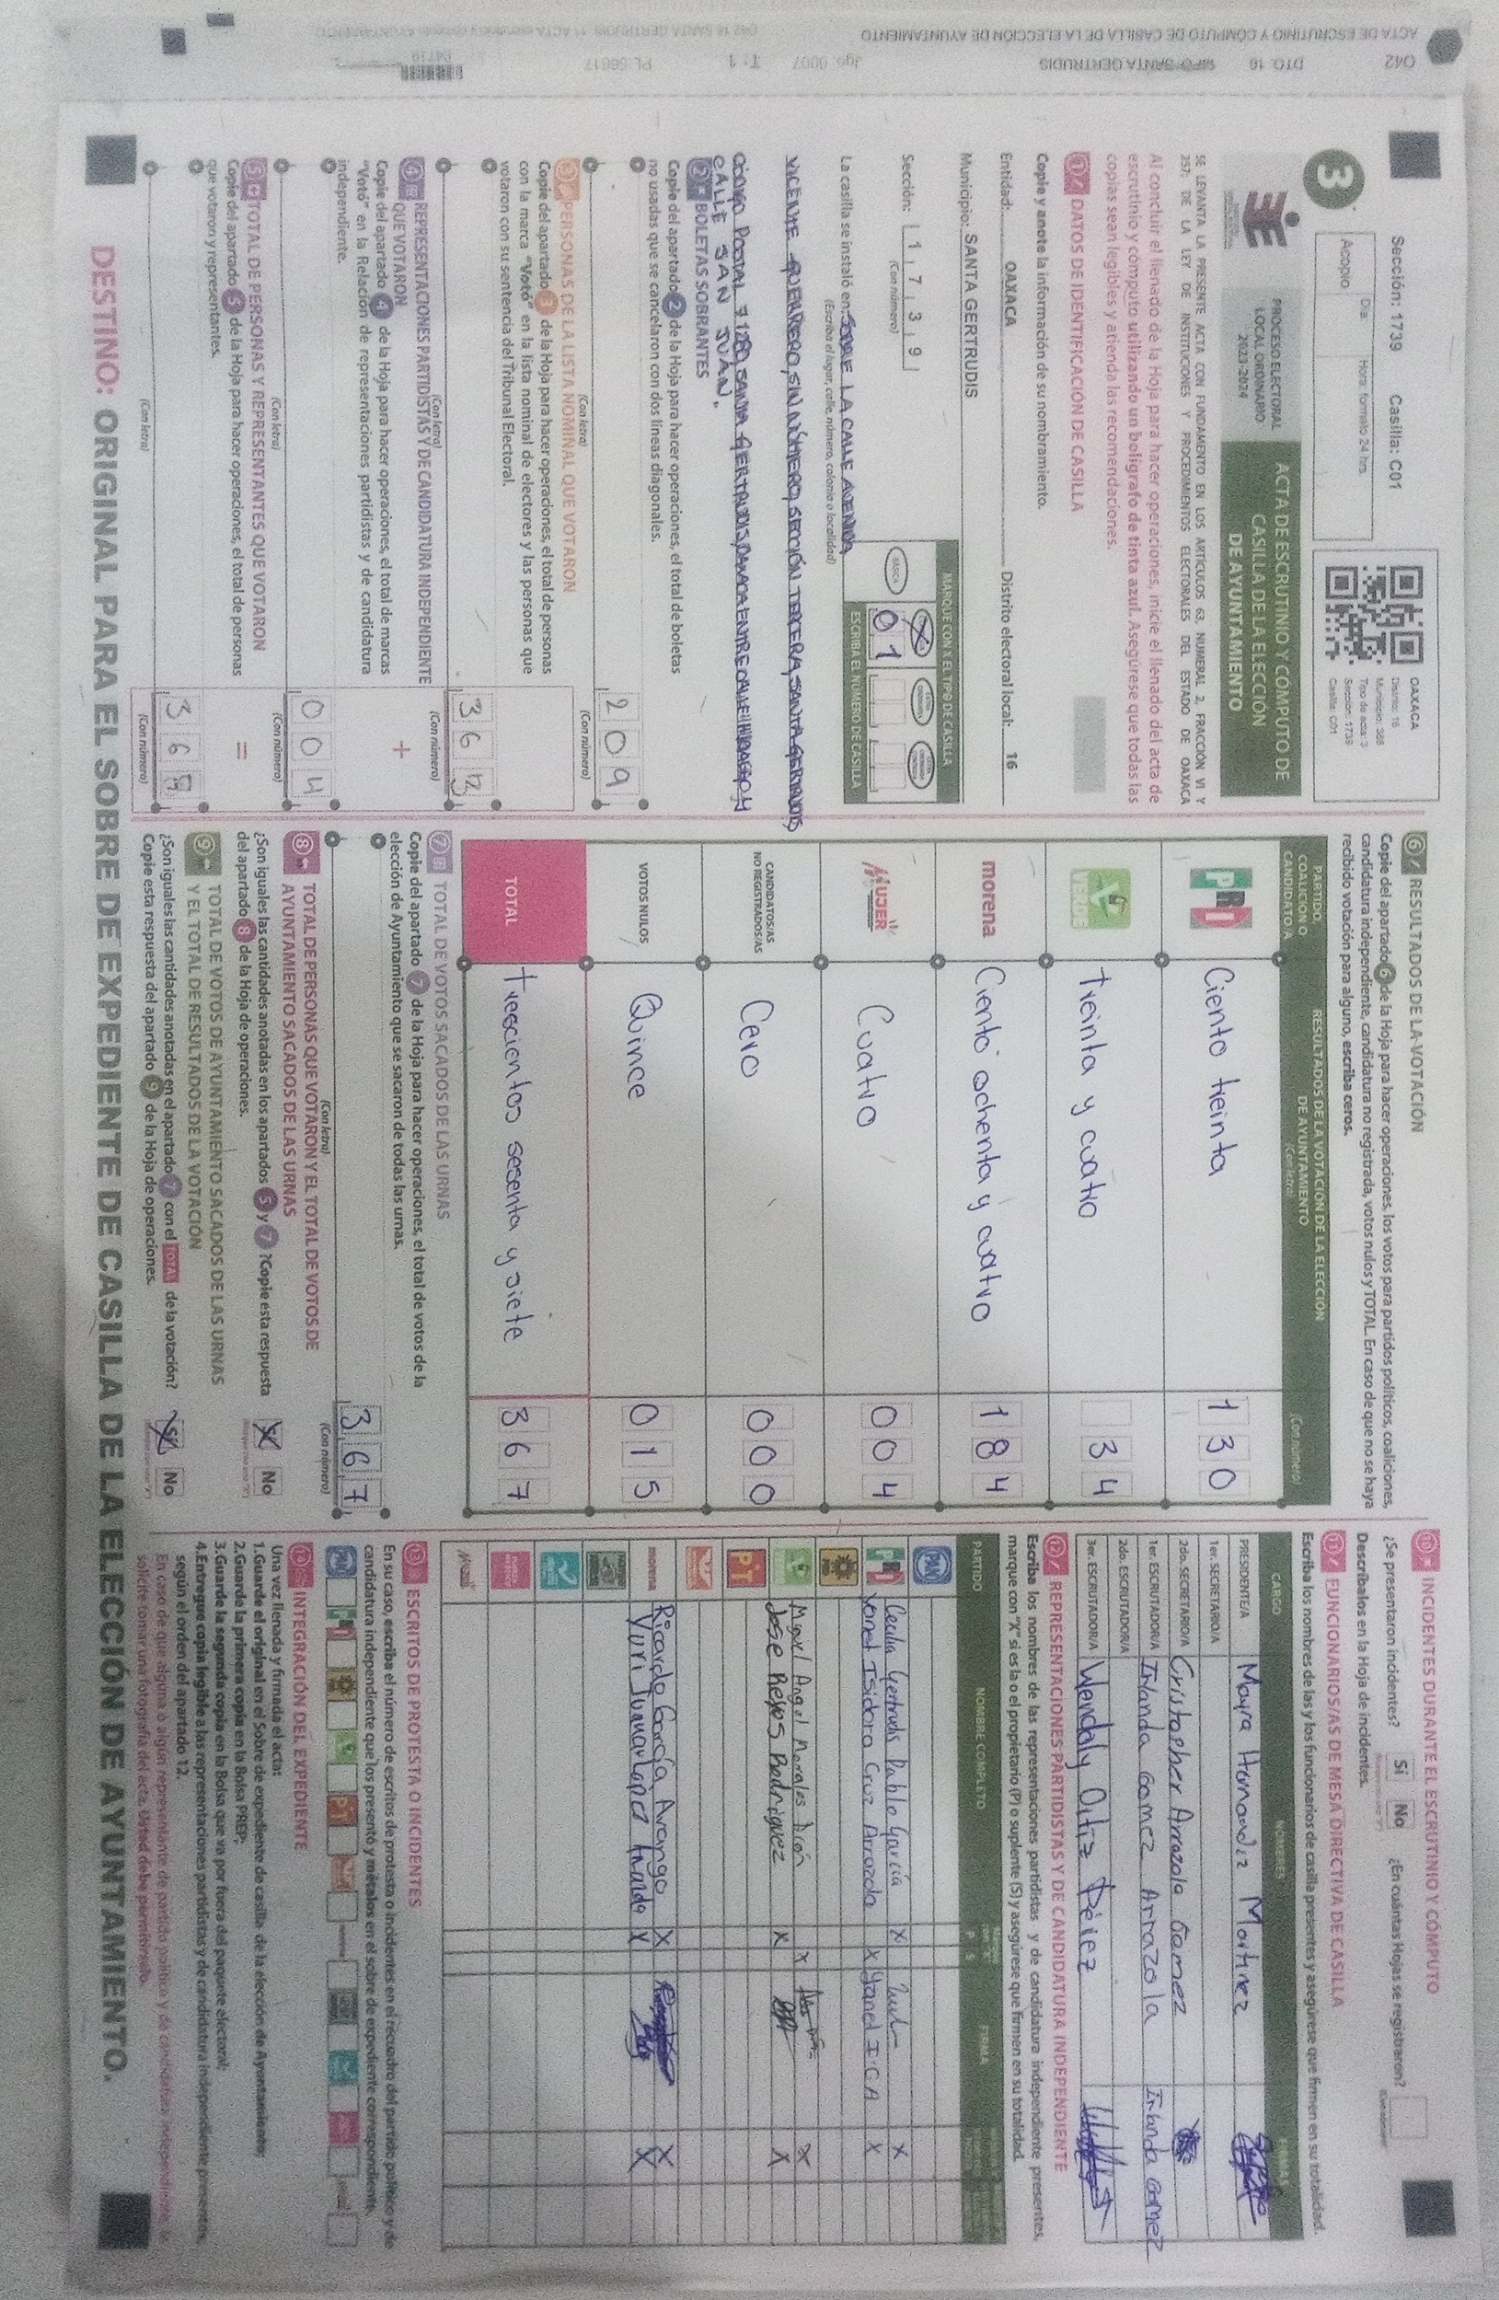 Sección: 1739 Casilla: C01
Día: Hora: formato 24 hrs.
Acopio
OAXACA
Distrito: 16
Municipio: 388
Tipo de acta: 3
Sección: 1739
Casilla: C01
3
PROCESO ELECTORAL
LOCAL ORDINARIO
2023-2024
ACTA DE ESCRUTINIO Y CÓMPUTO DE
CASILLA DE LA ELECCIÓN
DE AYUNTAMIENTO
SE LEVANTA LA PRESENTE ACTA CON FUNDAMENTO EN LOS ARTÍCULOS 63, NUMERAL 2, FRACCIÓN VI Y
257; DE LA LEY DE INSTITUCIONES Y PROCEDIMIENTOS ELECTORALES DEL ESTADO DE OAXACA
Al concluir el llenado de la Hoja para hacer operaciones, inicie el llenado del acta de
escrutinio y cómputo utilizando un bolígrafo de tinta azul. Asegúrese que todas las
copias sean legibles y atienda las recomendaciones.
1 DATOS DE IDENTIFICACIÓN DE CASILLA
Copie y anote la información de su nombramiento.
Entidad: OAXACA Distrito electoral local: 16
Municipio: SANTA GERTRUDIS
Sección: 1 7 3 9
(Con número)
MARQUE CON X EL TIPO DE CASILLA
BÁSICA
0 1
ESCRIBA EL NÚMERO DE CASILLA
La casilla se instaló en: SOBRE LA CALLE AVENIDA
(Escriba el lugar, calle, número, colonia o localidad)
VICENTE GUERRERO, SIN NÚMERO, SECCIÓN TERCERA, SANTA GERTRUDIS
CÓDIGO POSTAL 71280, SANTA GERTRUDIS, OAXACA ENTRE CALLE HIDALGO Y
CALLE SAN JUAN.
2 BOLETAS SOBRANTES
Copie del apartado 2 de la Hoja para hacer operaciones, el total de boletas
no usadas que se cancelaron con dos líneas diagonales.
2 0 9
(Con letra) (Con número)
3 PERSONAS DE LA LISTA NOMINAL QUE VOTARON
Copie del apartado 3 de la Hoja para hacer operaciones, el total de personas
con la marca "Votó" en la lista nominal de electores y las personas que
votaron con su sentencia del Tribunal Electoral.
3 6 3
(Con letra) (Con número)
4 REPRESENTACIONES PARTIDISTAS Y DE CANDIDATURA INDEPENDIENTE
QUE VOTARON
Copie del apartado 4 de la Hoja para hacer operaciones, el total de marcas
"Votó" en la Relación de representaciones partidistas y de candidatura
independiente.
+
0 0 4
(Con letra) (Con número)
5 TOTAL DE PERSONAS Y REPRESENTANTES QUE VOTARON
Copie del apartado 5 de la Hoja para hacer operaciones, el total de personas
que votaron y representantes.
=
3 6
(Con letra) (Con número)
6 RESULTADOS DE LA VOTACIÓN
Copie del apartado 6 de la Hoja para hacer operaciones, los votos para partidos políticos, coaliciones,
candidatura independiente, candidatura no registrada, votos nulos y TOTAL. En caso de que no se haya
recibido votación para alguno, escriba ceros.
PARTIDO,
COALICIÓN O
CANDIDATO/A
RESULTADOS DE LA VOTACIÓN DE LA ELECCIÓN
DE AYUNTAMIENTO
(Con letra) (Con número)
PRI Ciento treinta 1 3 0
VERDE treinta y cuatro 3 4
morena Ciento ochenta y cuatro 1 8 4
MUJER Cuatro 0 0 4
CANDIDATOS/AS
NO REGISTRADOS/AS Cero 0 0 0
VOTOS NULOS Quince 0 1 5
TOTAL trescientos sesenta y siete 3 6 7
7 TOTAL DE VOTOS SACADOS DE LAS URNAS
Copie del apartado 7 de la Hoja para hacer operaciones, el total de votos de la
elección de Ayuntamiento que se sacaron de todas las urnas.
3 6 7
(Con letra) (Con número)
8 TOTAL DE PERSONAS QUE VOTARON Y EL TOTAL DE VOTOS DE
AYUNTAMIENTO SACADOS DE LAS URNAS
¿Son iguales las cantidades anotadas en los apartados 5 y 7 ? Copie esta respuesta
del apartado 8 de la Hoja de operaciones.
Sí No
9 TOTAL DE VOTOS DE AYUNTAMIENTO SACADOS DE LAS URNAS
Y EL TOTAL DE RESULTADOS DE LA VOTACIÓN
¿Son iguales las cantidades anotadas en el apartado 7 con el TOTAL de la votación?
Copie esta respuesta del apartado 9 de la Hoja de operaciones.
Sí No
10 INCIDENTES DURANTE EL ESCRUTINIO Y CÓMPUTO
¿Se presentaron incidentes? Sí No ¿En cuántas Hojas se registraron?
Descríbalos en la Hoja de incidentes.
11 FUNCIONARIOS/AS DE MESA DIRECTIVA DE CASILLA
Escriba los nombres de las y los funcionarios de casilla presentes y asegúrese que firmen en su totalidad.
CARGO NOMBRES FIRMAS
PRESIDENTE/A Mayra Hernandez Martinez
1er. SECRETARIO/A
2do. SECRETARIO/A Cristopher Arrazola Gomez
1er. ESCRUTADOR/A Irlanda Gomez Arrazola Irlanda Gomez
2do. ESCRUTADOR/A
3er. ESCRUTADOR/A Wendoly Ortiz Pérez
12 REPRESENTACIONES PARTIDISTAS Y DE CANDIDATURA INDEPENDIENTE
Escriba los nombres de las representaciones partidistas y de candidatura independiente presentes,
marque con "X" si es la o el propietario (P) o suplente (S) y asegúrese que firmen en su totalidad.
PARTIDO NOMBRE COMPLETO P S FIRMA
PAN
PRI Cecilia Gertrudis Pablo García X X
Yanet Isidora Cruz Arrazola X Yaned I.C.A X
Miguel Angel Morales X X
Jose Reyes Rodriguez X X
PT
morena Ricardo García Arango X X
Yuri X X
13 ESCRITOS DE PROTESTA O INCIDENTES
En su caso, escriba el número de escritos de protesta o incidentes en el recuadro del partido político y de
candidatura independiente que los presentó y métalos en el sobre de expediente correspondiente.
14 INTEGRACIÓN DEL EXPEDIENTE
Una vez llenada y firmada el acta:
1.Guarde el original en el Sobre de expediente de casilla de la elección de Ayuntamiento;
2.Guarde la primera copia en la Bolsa PREP;
3.Guarde la segunda copia en la Bolsa que va por fuera del paquete electoral;
4.Entregue copia legible a las representaciones partidistas y de candidatura independiente presentes,
según el orden del apartado 12.
En caso de que alguna o algún representante de partido político y de candidatura independiente, le
solicite tomar una fotografía del acta, usted debe permitírselo.
DESTINO: ORIGINAL PARA EL SOBRE DE EXPEDIENTE DE CASILLA DE LA ELECCIÓN DE AYUNTAMIENTO.
042 DTO. 16 MPO. SANTA GERTRUDIS
ACTA DE ESCRUTINIO Y CÓMPUTO DE CASILLA DE LA ELECCIÓN DE AYUNTAMIENTO